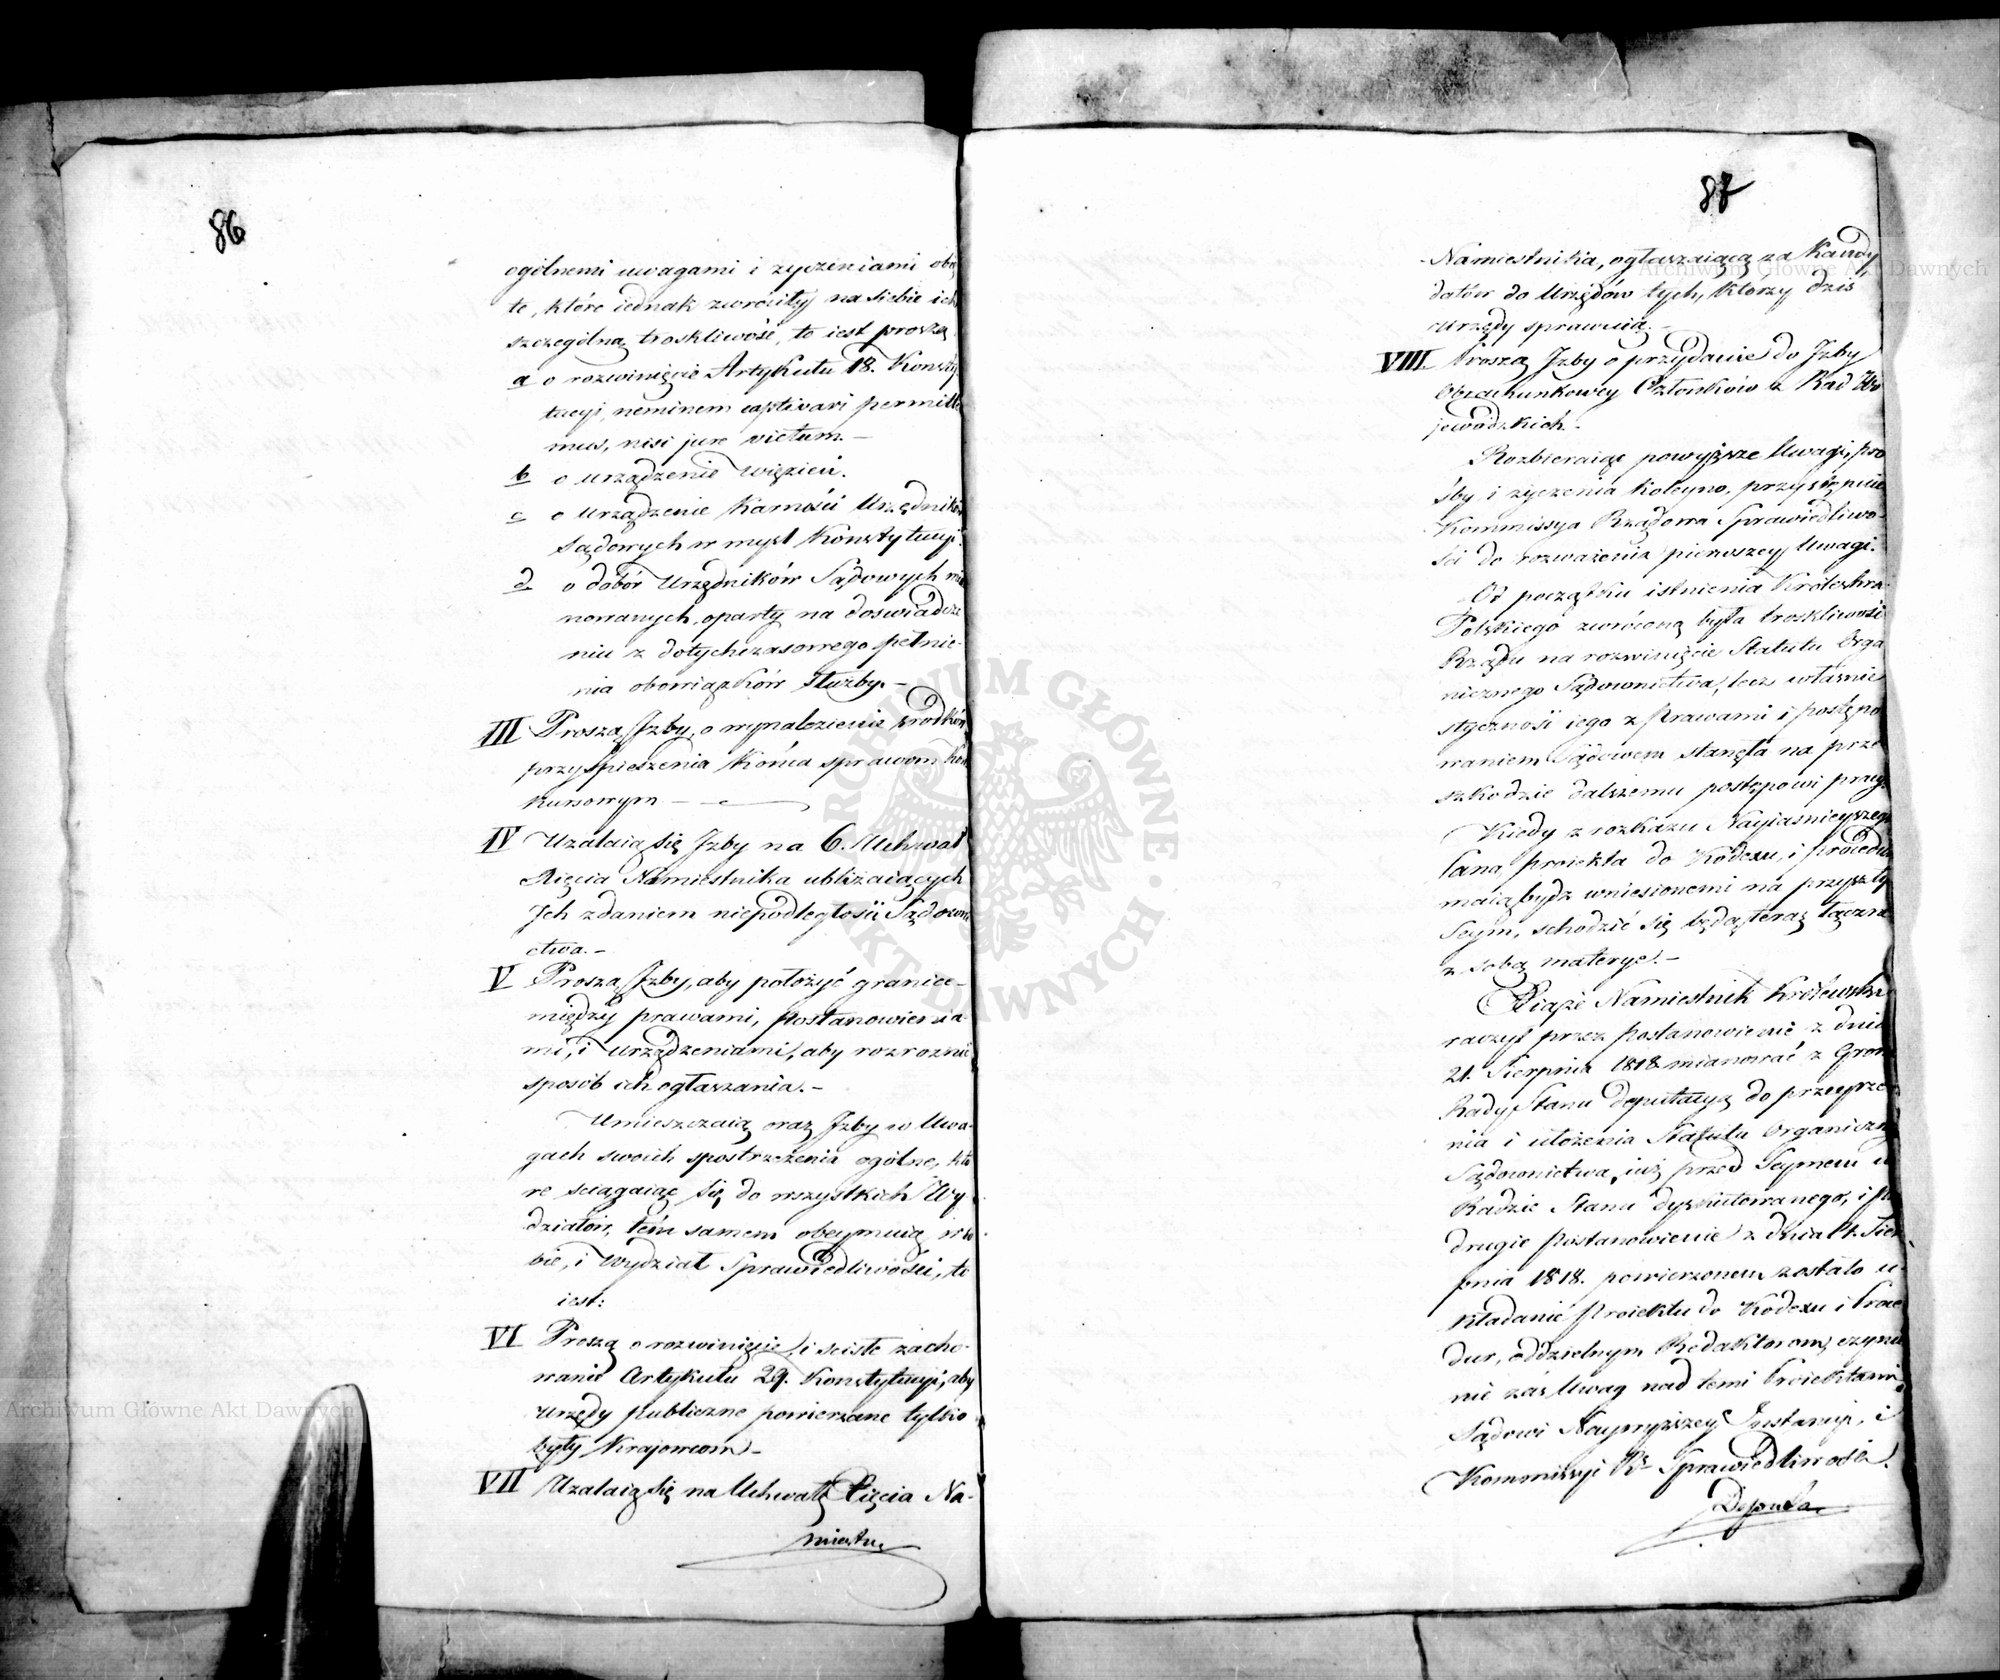 86
ogólnemi uwagami i zyczeniami obię
te, które iednak zwróciły na siebie ich
szczególną troskliwość, to iest proszą
a o rozwinięcie Artykułu 18. Konsty
tucyi, neminem captivari permitte
mus, nisi jure victum. –
b o urządzenie więzień.
c o urządzenie Karności Urzędników
Sądowych w myśl Konstytucyi.
d o dobór Urzędników Sądowych mia
nowanych, oparty na doswiadcze
niu z dotychczasowego pełnie-
nia obowiązków służby. –
III Proszą Izby, o wynalezienie srodków
przyspieszenia Końca sprawom Kon
kursowym –
IV Uzalaią się Izby na 6. Uchwał
Xięcia Namiestnika ubliżaiących
Ich zdaniem niepodległości Sądowni
ctwa. –
V Proszą Izby, aby położyć granice –
między prawami, Postanowienia-
mi, i urządzeniami, aby rozroznić
sposób ich ogłaszania. –
Umieszczaią oraz Izby w Uwa-
gach swoich spostrzeżenia ogólne, któ
re sciągaiąc się do wszystkich Wy
działów, tém samem obeymuią w so
bie, i Wydział Sprawiedliwości, to
iest:
VI Proszą o rozwinięcie, i sciste zacho-
wanie Artykułu 29. Konstytucyi, aby
urzędy publiczne powierzane tylko
były Krajowcom –
VII Uzalaią się na Uchwałę Xięcia Na-
miestni
87
Namiestnika, ogłaszaiącą za Kandy
datów do Urzędów tych, którzy dzis
urzędy sprawuią. –
VIII. Proszą Izby o przydanie do Izby
Obrachunkowey Członków z Rad Wo
jewódzkich. –
Rozbieraiąc powyższe Uwagi, pro
śby, i życzenia koleyno, przystępuie
Kommissya Rządowa Sprawiedliwo-
ści do rozważenia pierwszey Uwagi.
Od początku istnienia Królestwa
Polskiego zwróconą była troskliwość
Rządu na rozwinięcie Statutu Orga
nicznego Sądownictwa, lecz właśnie
styczność iego z Prawami i postępo
waniem Sądowem stanęła na prze
szkodzie dalszemu postępowi pracy.
Kiedy z rozkazu Nayiasnieyszego
Pana, proiekta do Kodexu, i Procedury
maią bydz wniesionemi na przyszły
Seym, schodzić się będą teraz łączne
z sobą materye. –
Xiąże Namiestnik Królewski
raczył przez postanowienie z dnia
21. Sierpnia 1818 mianować z Grona
Rady Stanu deputacyą do przeyrze
nia i ułożenia Statutu Organiczne
Sądownictwa, iuż przed Seymem w
Radzie Stanu dyskutowanego, i przez
drugie Postanowienie z dnia
pnia 1818. powierzonem zostało u
kładanie Proiektu do Kodexu i Proce
dur, oddzielnym Redaktorom, czynie
nie zaś Uwag nad temi Proiektami,
Sądowi Naywyższey Instancyi, i
Kommissyi R. Sprawiedliwości.
Deputa
Archiwum Główne Akt Dawnych
Archiwum Główne Akt Dawnych
ARCHIWUM GŁÓWNE AKT DAWNYCH